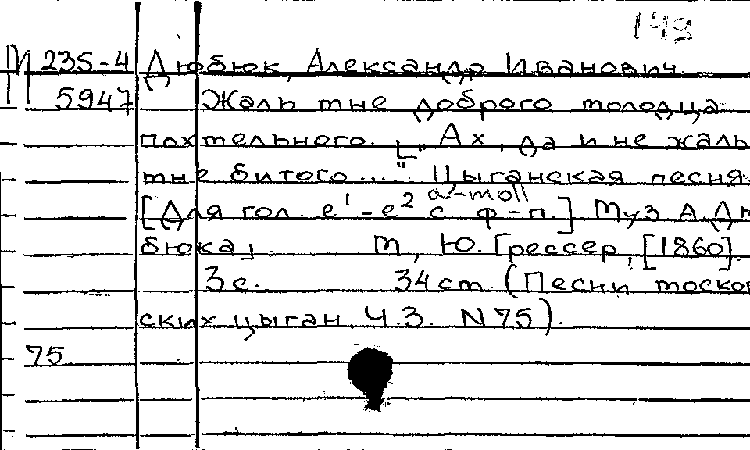 149
П 235-4 Дюбюк, Александр Иванович.
5947 Жаль мне доброго молодца
похмельного. [„Ах, да и не жаль
мне битого...." Цыганская песня.
a-moll
[Для гол. e¹-e² с ф-п.] Муз А.Дю
бюка,
М, Ю. Грессер, [1860].
3 с. 34 см (Песни москов
ских цыган. Ч.3. N 75).
75